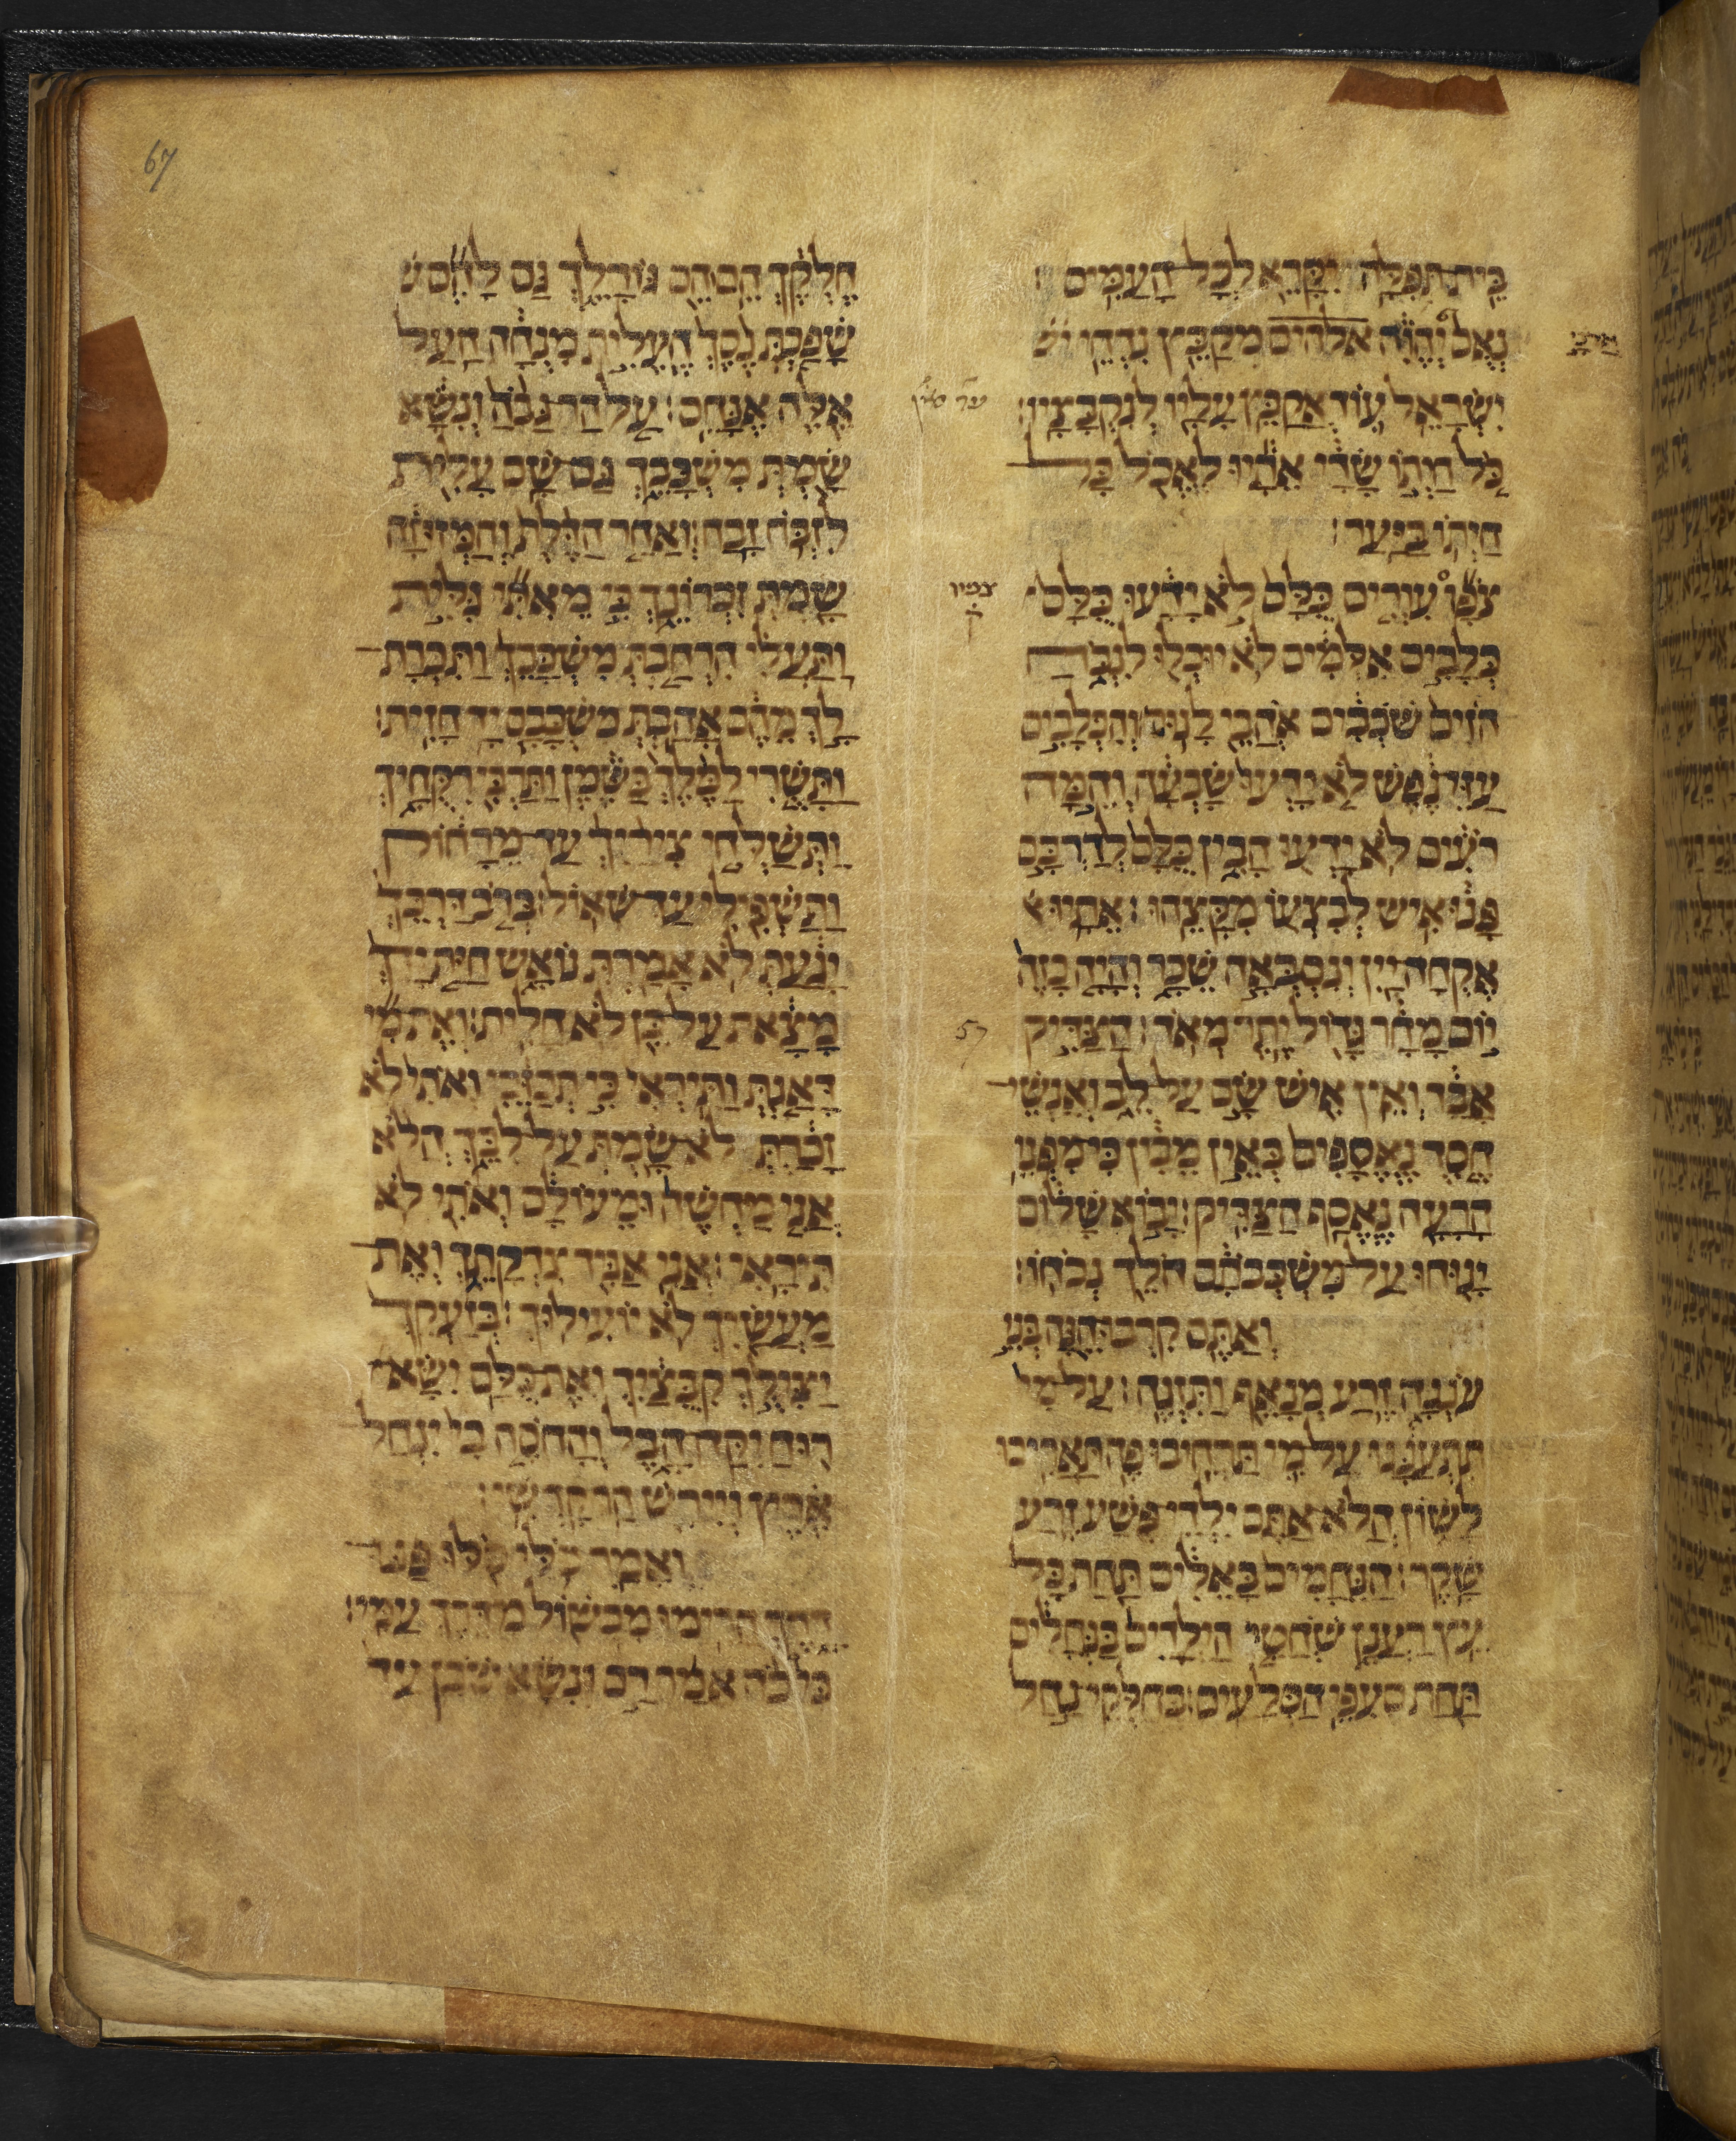 67
בֵּית תְּפִלָּה יִקָּרֵא לְכָל הָעַמִּים׃
נְאֻם יְהוִֹה אלהים מְקַבֵּץ נִדְחֵי יש
יִשְׂרָאֵל עוֹד אֲקַבֵּץ עָלָיו לְנִקְבָּצָיו׃
כֹּל חַיְתוֹ שָׂדָי אֵתָיוּ לֶאֱכֹל כָּל
חַיְתוֹ בַּיָּעַר׃
צֹפָו עִוְרִים כֻּלָּם לֹא יָדָעוּ כֻּלָּם
כְּלָבִים אִלְּמִים לֹא יוּכְלוּ לִנְבֹּחַ
הֹזִים שֹׁכְבִים אֹהֲבֵי לָנוּם׃ וְהַכְּלָבִים
עַזֵּי נֶפֶשׁ לֹא יָדְעוּ שָׂבְעָה וְהֵמָּה
רֹעִים לֹא יָדְעוּ הָבִין כֻּלָּם לְדַרְכָּם
פָּנוּ אִישׁ לְבִצְעוֹ מִקָּצֵהוּ׃ אֵתָיוּ א
אֶקְחָה יַיִן וְנִסְבְּאָה שֵׁכָר וְהָיָה כָזֶה
יוֹם מָחָר גָּדוֹל יֶתֶר מְאֹד׃ הַצַּדִּיק
אָבָד וְאֵין אִישׁ שָׂם עַל לֵב וְאַנְשֵׁי
חֶסֶד נֶאֱסָפִים בְּאֵין מֵבִין כִּי מִפְּנֵי
הָרָעָה נֶאֱסַף הַצַּדִּיק׃ יָבוֹא שָׁלוֹם
יָנוּחוּ עַל מִשְׁכְּבֹתָם הֹלֵךְ נְכֹחוֹ׃
וְאַתֶּם קִרְבוּ הֵנָּה בְּנֵי
עֹנְנָה זֶרַע מְנָאֵף וַתִּזְנֶה׃ עַל מִי
תִּתְעַנָּגוּ עַל מִי תַּרְחִיבוּ פֶה תַּאֲרִיכוּ
לָשׁוֹן הֲלֹא אַתֶּם יִלְדֵי פֶשַׁע זֶרַע
שָׁקֶר׃ הַנֵּחָמִים בָּאֵלִים תַּחַת כָּל
עֵץ רַעֲנָן שֹׁחֲטֵי הַיְלָדִים בַּנְּחָלִים
תַּחַת סְעִפֵי הַסְּלָעִים׃ בְּחַלְּקֵי נַחַל
צפיו
ק
57
חֶלְקֵךְ הֵם הֵם גּוֹרָלֵךְ גַּם לָהֶם ש
שָׁפַכְתְּ נֶסֶךְ הֶעֱלִית מִנְחָה הַעַל
אֵלֶּה אֶנָּחֵם׃ עַל הַר גָּבֹהַּ וְנִשָּׂא
שַׂמְתְּ מִשְׁכָּבֵךְ גַּם שָׁם עָלִית
לִזְבֹּחַ זָבַח׃ וְאַחַר הַדֶּלֶת וְהַמְּזוּזָה
שַׂמְתְּ זִכְרוֹנֵךְ כִּי מֵאִתִּי גִּלִּית
וַתַּעֲלִי הִרְחַבְתְּ מִשְׁכָּבֵךְ וַתִּכְרָת
לָךְ מֵהֶם אָהַבְתְּ מִשְׁכָּבָם יָד חָזִית׃
וַתָּשֻׁרִי לַמֶּלֶךְ בַּשֶּׁמֶן וַתַּרְבִּי רִקֻּחָיִךְ
וַתְּשַׁלְּחִי צִירַיִךְ עַד מֵרָחוֹק
וַתַּשְׁפִּילִי עַד שְׁאוֹל׃ בְּרֹב דַּרְכֵּךְ
יָגַעַתְּ לֹא אָמַרְתְּ נוֹאָשׁ חַיַּת יָדֵךְ
מָצָאת עַל כֵּן לֹא חָלִית׃ וְאֶת מִי
דָּאַגְתְּ וַתִּירְאִי כִּי תְכַזֵּבִי וְאוֹתִי לֹא
זָכַרְתְּ לֹא שַׂמְתְּ עַל לִבֵּךְ הֲלֹא
אֲנִי מַחְשֶׁה וּמֵעוֹלָם וְאֹתִי לֹא
תִירָאִי׃ אֲנִי אַגִּיד צִדְקָתֵךְ וְאֶת
מַעֲשַׂיִךְ לֹא יוֹעִילוּךְ׃ בְּזַעֲקֵךְ
יַצִּילֻךְ קִבּוּצַיִךְ וְאֶת כֻּלָּם יִשָּׂא
רוּחַ יִקַּח הָבֶל וְהַחֹסֶה בִי יִנְחַל
אֶרֶץ וְיִירַשׁ הַר קָדְשִׁי׃
וְאָמַר סֹלּוּ סֹלּוּ פַּנּוּ
דָרֶךְ הָרִימוּ מִכְשׁוֹל מִדֶּרֶךְ עַמִּי׃
כִּי כֹה אָמַר רָם וְנִשָּׂא שֹׁכֵן עַד